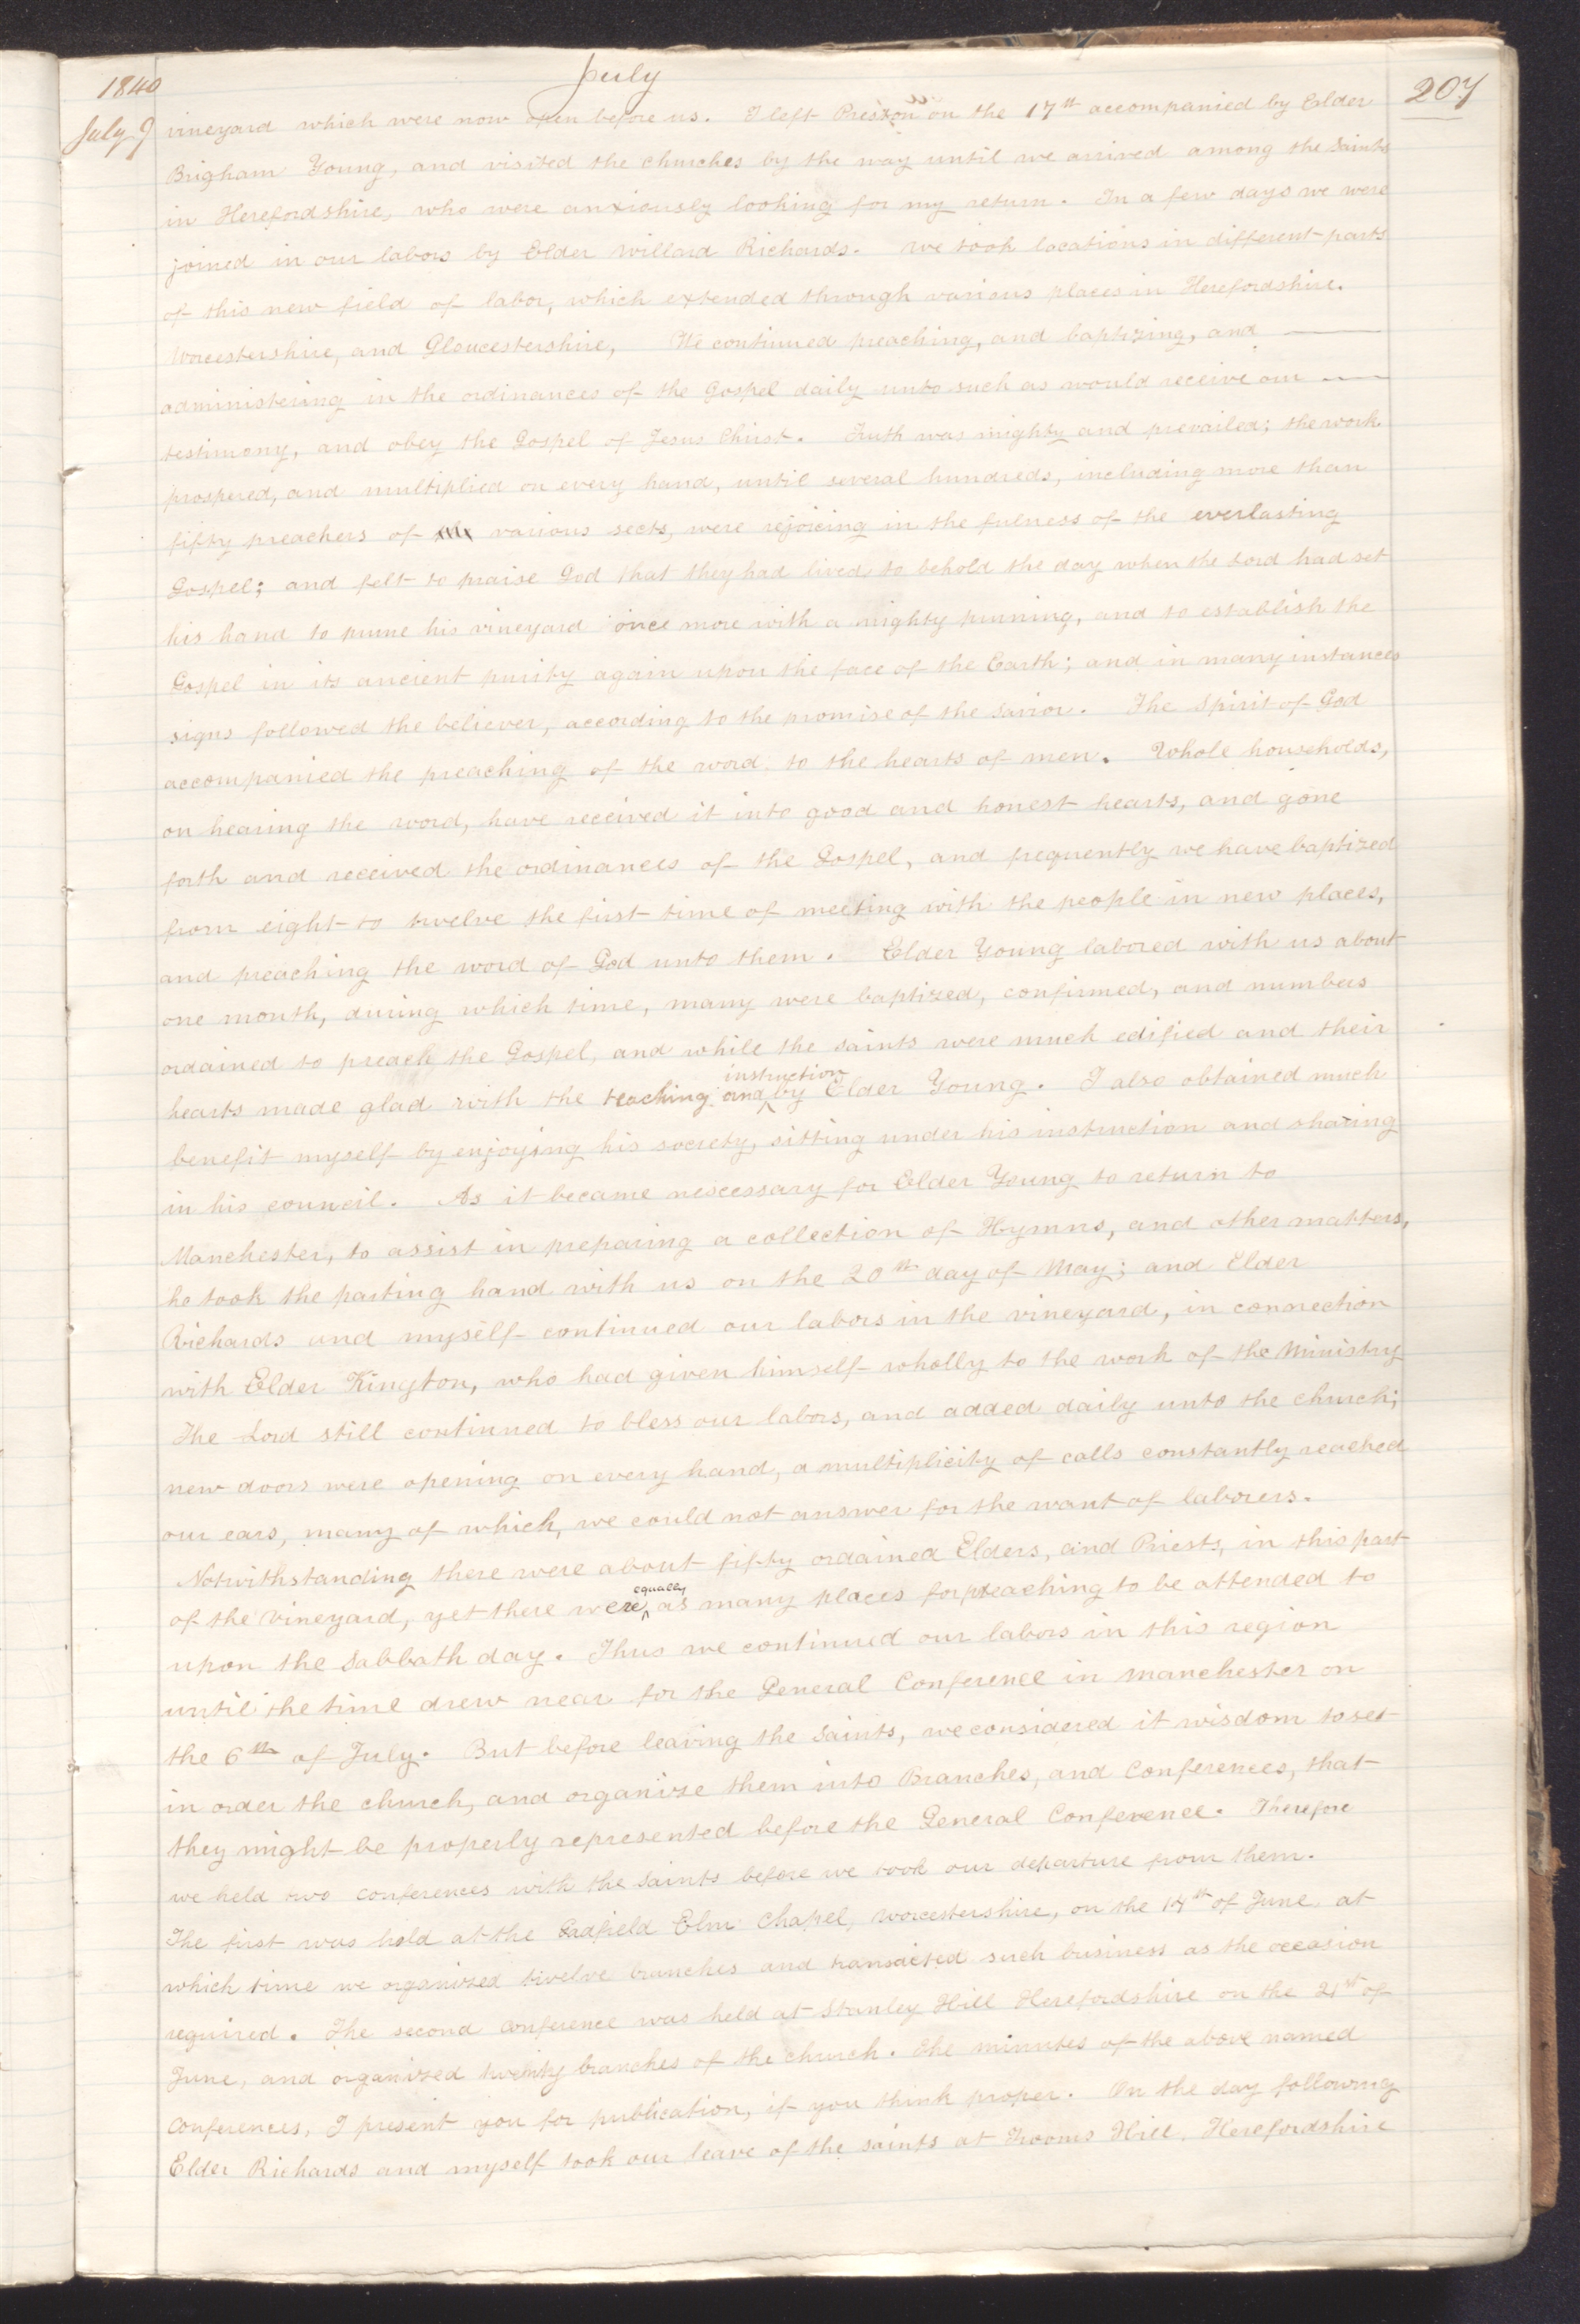 1840
July
207
July 9
vineyard which were now open before us. I left Preston on the 17th accompanied by Elder
Brigham Young, and visited the churches by the way until we arrived among the Saints
in Herefordshire, who were anxiously looking for my return. In a few days we were
joined in our labors by Elder Willard Richards. We took locations in different parts
of this new field of labor, which extended through various places in Herefordshire.
Worcestershire, and Gloucestershire, We continued preaching, and baptizing, and
administering in the ordinances of the Gospel daily unto such as would receive our
testimony, and obey the Gospel of Jesus Christ. Truth was mighty and prevailed; the work
prospered, and multiplied on every hand, until several hundreds, including more than
fifty preachers of various sects, were rejoicing in the fulness of the everlasting
Gospel; and felt to praise God that they had lived to behold the day when the Lord had set
his hand to prune his vineyard once more with a mighty pruning, and to establish the
Gospel in its ancient purity again upon the face of the Earth; and in many instances
signs followed the believer, according to the promise of the Savior. The Spirit of God
accompanied the preaching of the word to the hearts of men. Whole households,
on hearing the word, have received it into good and honest hearts, and gone
forth and received the ordinances of the Gospel, and frequently we have baptized
from eight to twelve the first time of meeting with the people in new places,
and preaching the word of God unto them. Elder Young labored with us about
one month, during which time, many were baptized, confirmed, and numbers
ordained to preach the Gospel, and while the saints were much edified and their
hearts made glad with the teaching and instruction by Elder Young. I also obtained much
benefit myself by enjoying his society, sitting under his instruction and sharing
in his council. As it became nescessary for Elder Young to return to
Manchester, to assist in preparing a collection of Hymns, and other matters,
he took the parting hand with us on the 20th day of May; and Elder
Richards and myself continued our labors in the vineyard, in connection
with Elder Kington, who had given himself wholly to the work of the Ministry
The Lord still continued to bless our labors, and added daily unto the church;
new doors were opening on every hand, a multiplicity of calls constantly reached
our ears, many of which, we could not answer for the want of laborers.
Notwithstanding there were about fifty ordained Elders, and Priests, in this part
of the vineyard, yet there were equally as many places for preaching to be attended to
upon the Sabbath day. Thus we continued our labors in this region
until the time drew near for the General Conference in Manchester on
the 6th of July. But before leaving the Saints, we considered it wisdom to set
in order the church, and organize them into Branches, and Conferences, that
they might be properly represented before the General Conference. Therefore
we held two conferences with the Saints before we took our departure from them.
The first was held at the Gadfield Elm Chapel, Worcestershire, on the 14th of June, at
which time we organized twelve branches and transacted such business as the occasion
required. The second conference was held at Stanley Hill Herefordshire on the 21st of
June, and organized twenty branches of the church. The minutes of the above named
conferences, I present you for publication, if you think proper. On the day following
Elder Richards and myself took our leave of the saints at Frooms Hill, Herefordshire